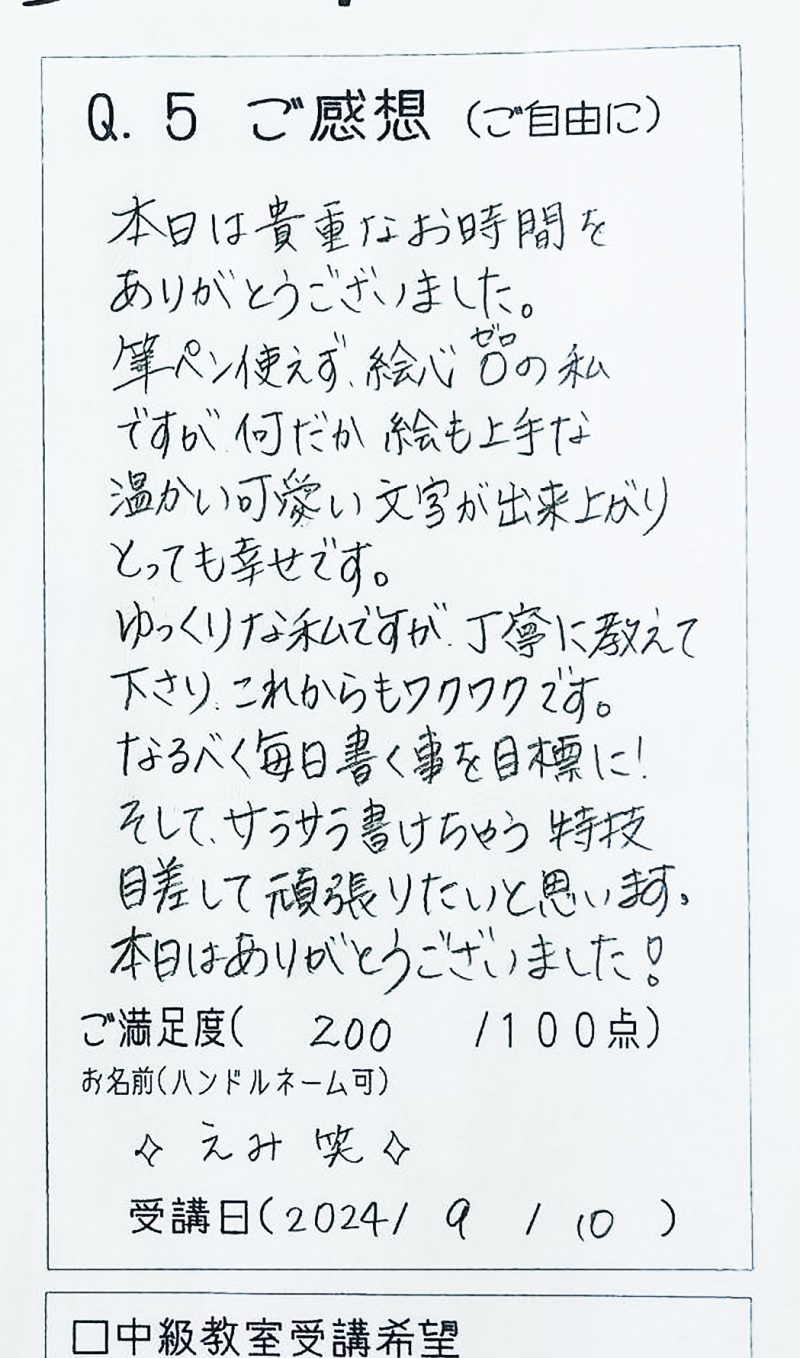 Q.5 ご感想(ご自由に)
本日は貴重なお時間を
ありがとうございました。
筆ペン使えず、絵心0の私
ゼロ
ですが、何だか絵も上手な
温かい可愛い文字が出来上がり
とっても幸せです。
ゆっくりな私ですが、丁寧に教えて
下さり、これからもワクワクです。
なるべく毎日書く事を目標に!
そして、サラサラ書けちゃう特技
目差して頑張りたいと思います。
本日はありがとうございました!
ご満足度( 200 /100点)
お名前(ハンドルネーム可)
✧ えみ 笑 ✧
受講日(2024/ 9 / 10 )
□中級教室受講希望